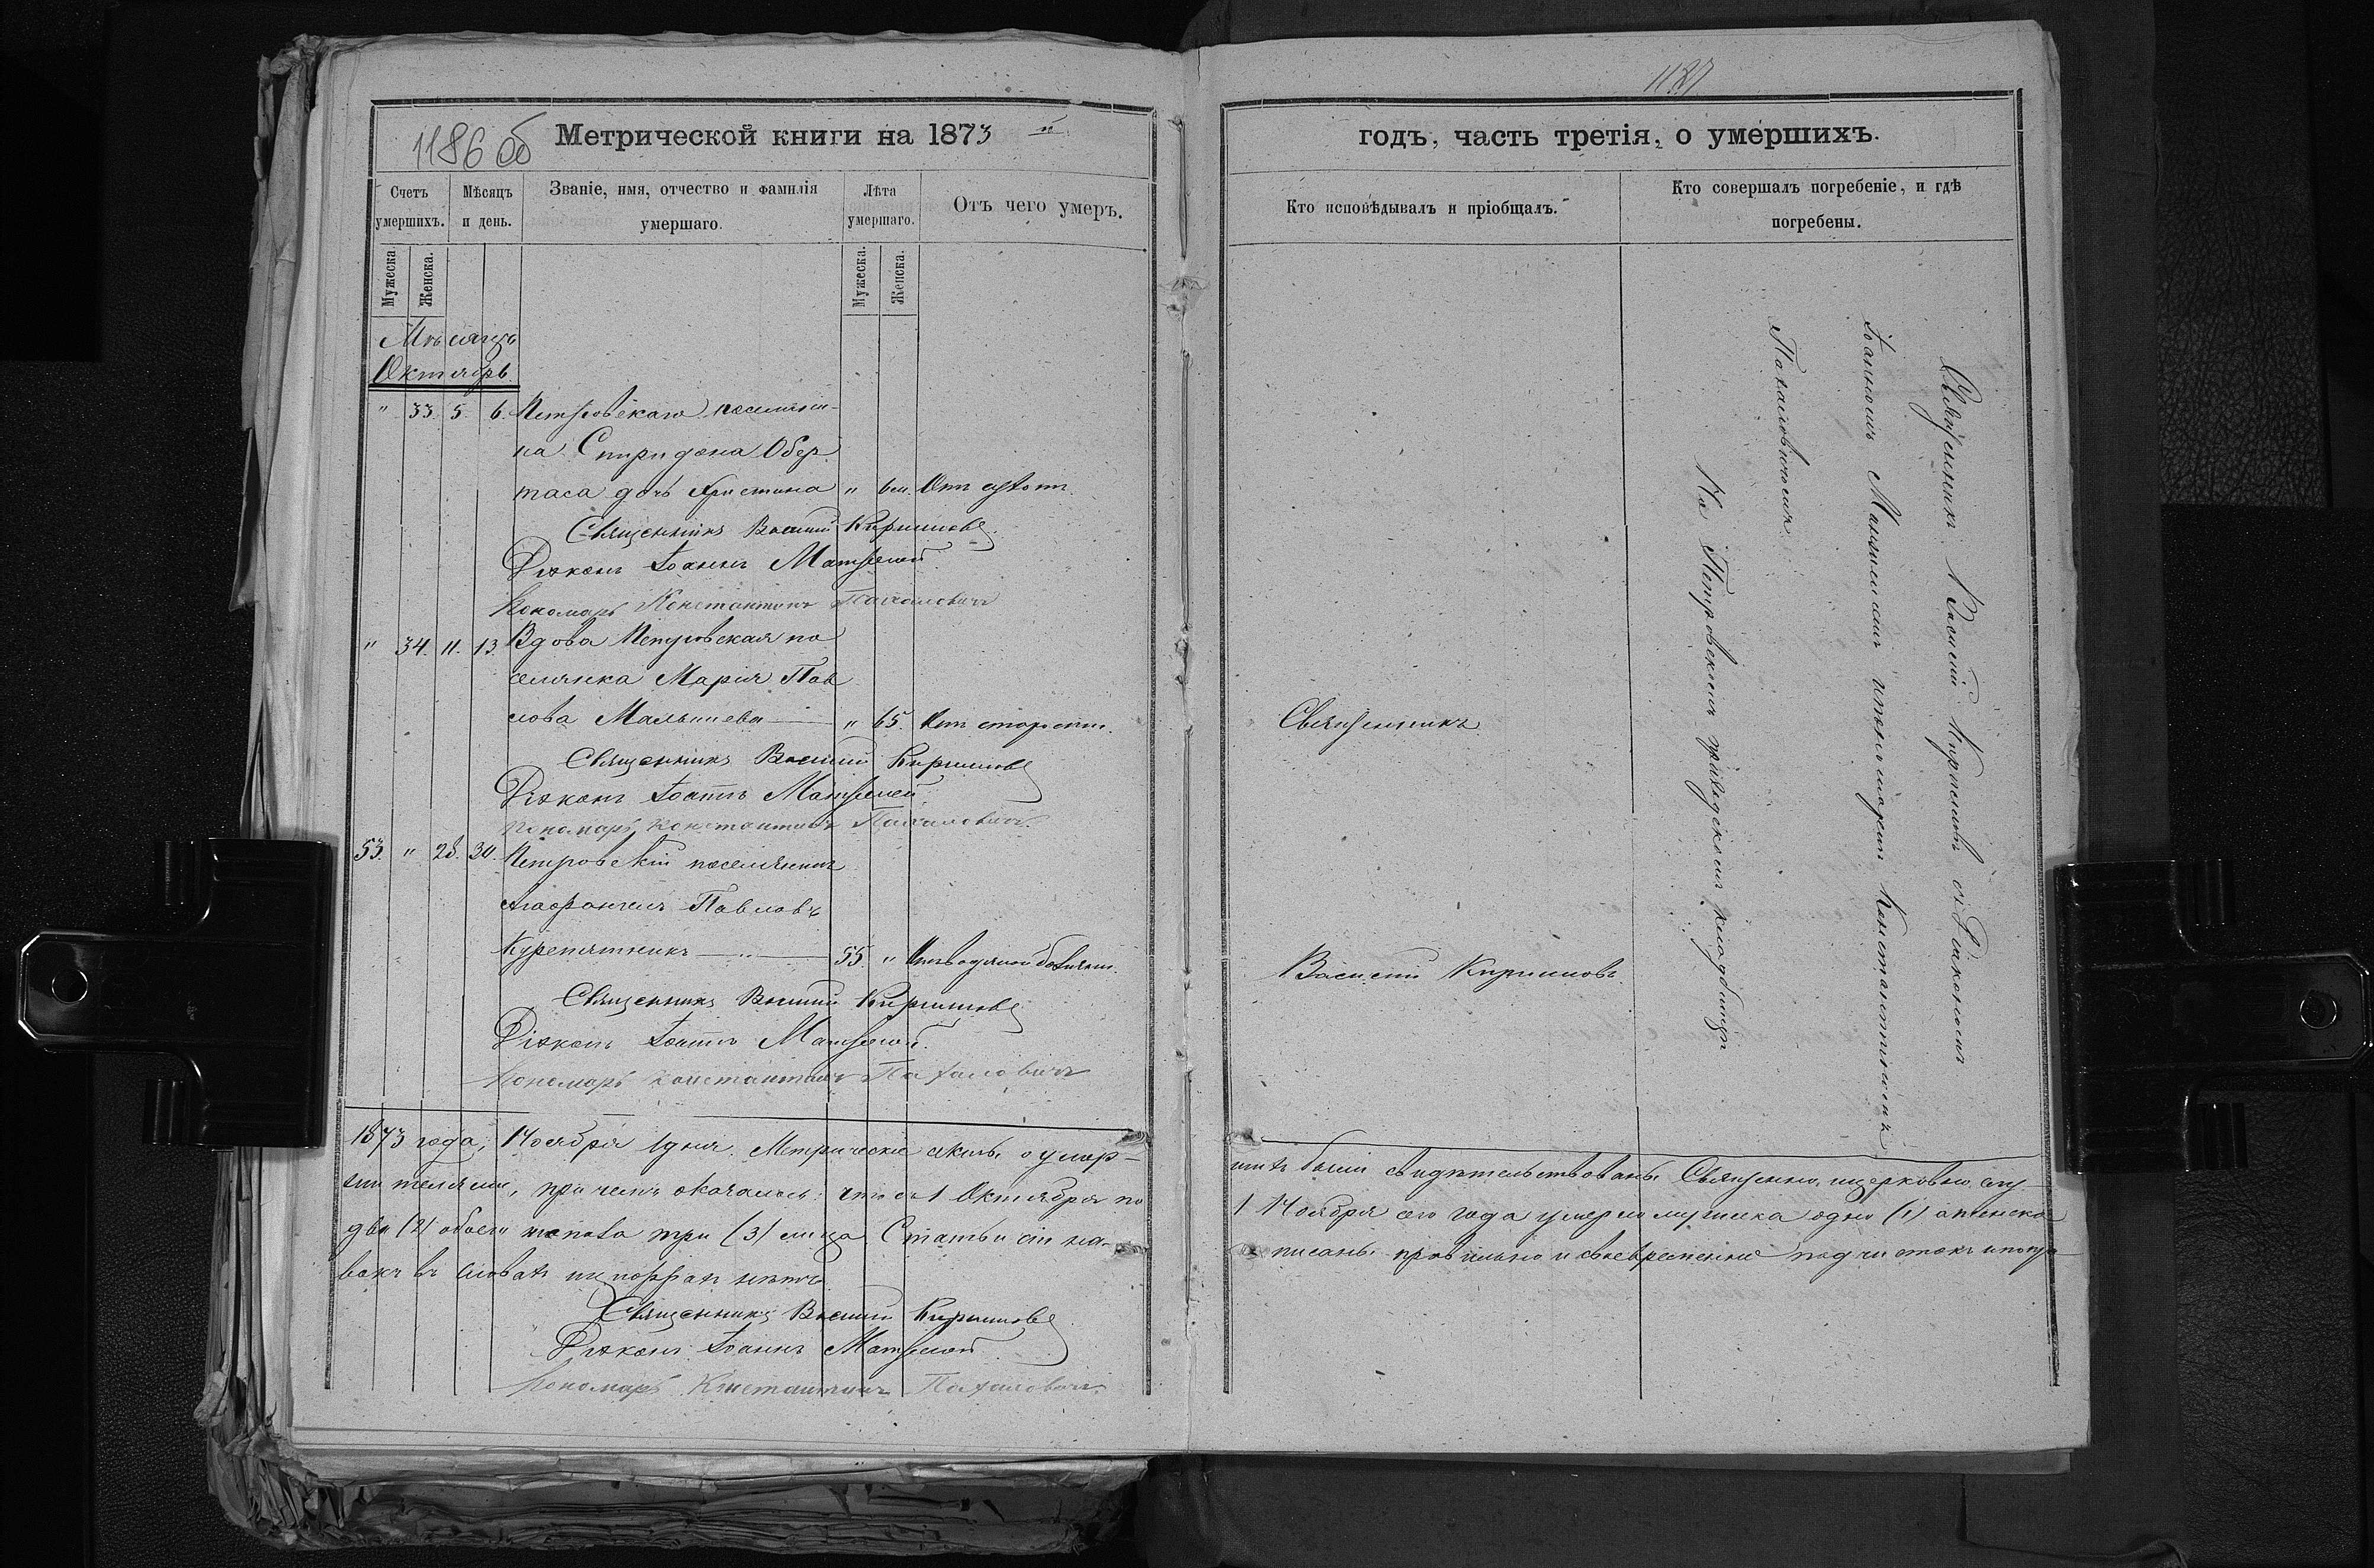 1186 об
Метрической книги на 1873 й
Счетъ умершихъ.
Мѣсяцъ и день.
Званіе, имя, отчество и фамилія умершаго.
Лѣта умершаго.
Отъ чего умеръ.
Мужеска.
Женска.
Мужеска.
Женска.
Мѣсяцъ
Октябрь.
" 33. 5. 6. Петровскаго поселяни-
на Спиридона Обер
таса дочь Христина " 6 м. Отъ
Священникъ Василий Кирилловъ
Діаконъ Іоаннъ
Пономарь Константинъ Пахаловичъ
" 34. 11. 13. Вдова Петровская по
селянка Марія Пав
лова Малышева " 65. Отъ старости.
Священникъ Василий Кирилловъ
Діаконъ Іоаннъ
Пономарь Константинъ Пахаловичъ
53. " 28. 30. Петровскій поселянинъ
Агафангелъ Павловъ
Курепятникъ 55. " Отъ водяной болѣзни.
Священникъ Василий Кирилловъ
Діаконъ Іоаннъ
Пономарь Константинъ Пахаловичъ
1873 года, Ноября 1 дня. Метрическіе акты о умер-
жителями, при чемъ оказалось: что съ 1 Октября по
два (2) обоего пола три (3) лица. Статьи сіи на-
вокъ въ словахъ и нѣтъ
Священникъ Василий Кирилловъ
Діаконъ Іоаннъ
Пономарь Константинъ Пахаловичъ
1187
годъ, часть третія, о умершихъ.
Кто исповѣдывалъ и пріобщалъ.
Кто совершалъ погребеніе, и гдѣ погребены.
Священникъ
Василій Кирилловъ
Священникъ Василій Кирилловъ съ Діакономъ
Іоанномъ и пономаремъ Константиномъ
Пахаловичемъ
На Петровскомъ приходскомъ кладбищѣ
шихъ были свидѣтельствованы Священно и церковно слу
1 Ноября сего года умерло мужеска одно (1) а женска
писаны правильно и своевременно подчистокъ и попра